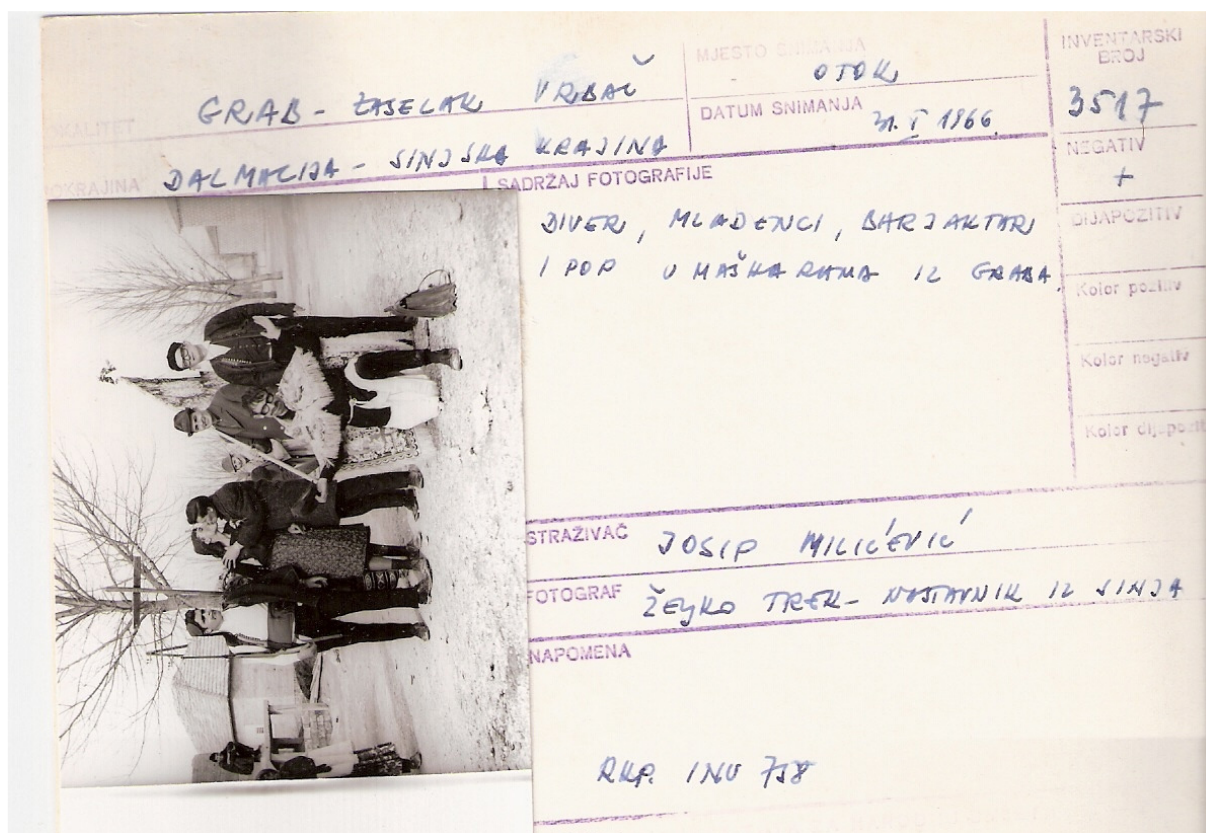 LOKALITET GRAB - ZASELAK VRBAČ
POKRAJINA DALMACIJA - SINJSKA KRAJINA
MJESTO SNIMANJA OTOK
DATUM SNIMANJA 31. I 1966.
INVENTARSKI
BROJ
3517
NEGATIV
+
DIJAPOZITIV
Kolor pozitiv
Kolor negativ
Kolor dijapozit
SADRŽAJ FOTOGRAFIJE
DIVER, MLADENCI, BARJAKTARI
I POP U MAŠKARAMA IZ GRABA.
STRAŽIVAČ JOSIP MILIĆEVIĆ
FOTOGRAF ŽELJKO TREK - NASTAVNIK IZ SINJA
NAPOMENA
RKP. INV 758